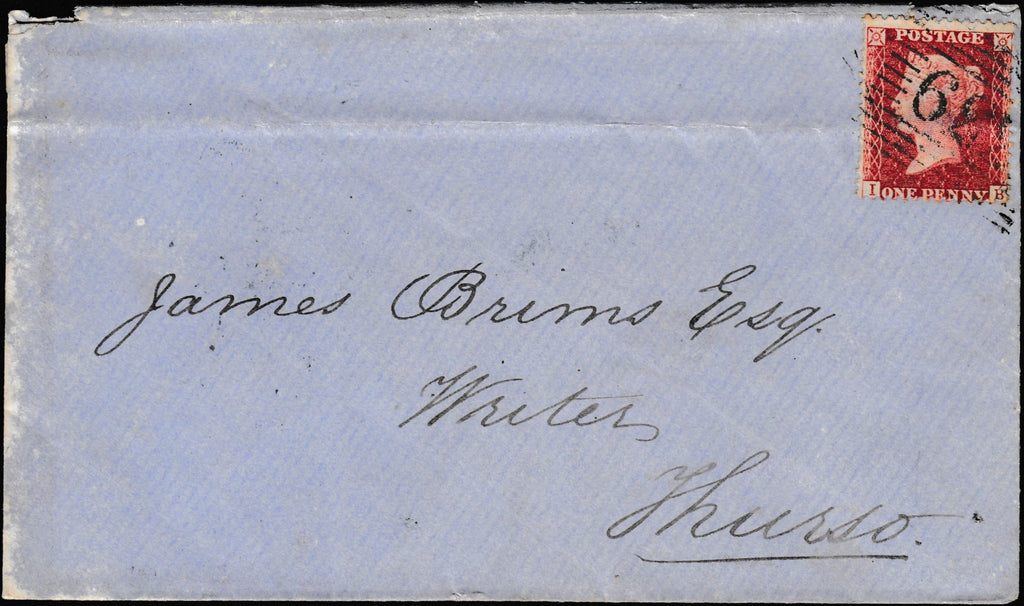 POSTAGE
I ONE PENNY B
James Brims Esq.
Writer
Thurso.